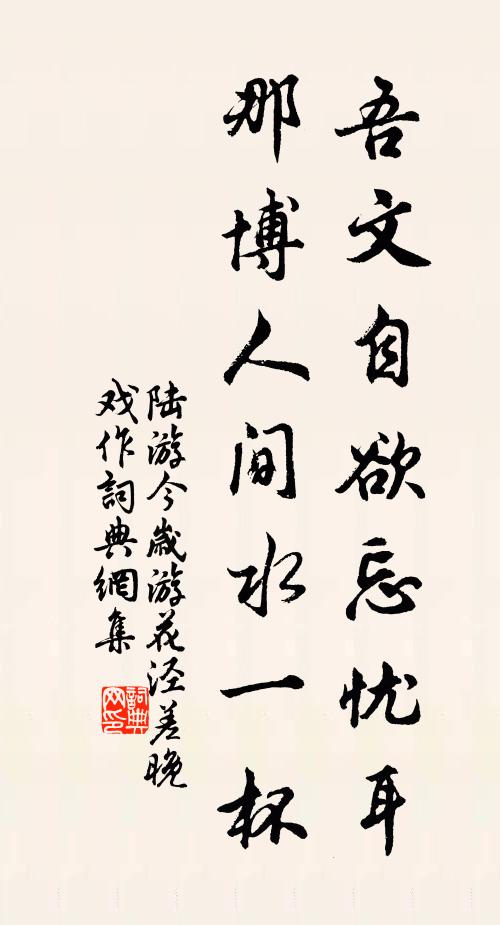 吾文自欲忘忧耳
那博人間水一杯
陆游今歲游花泾差晚
戏作詞典網集
詞典
网印